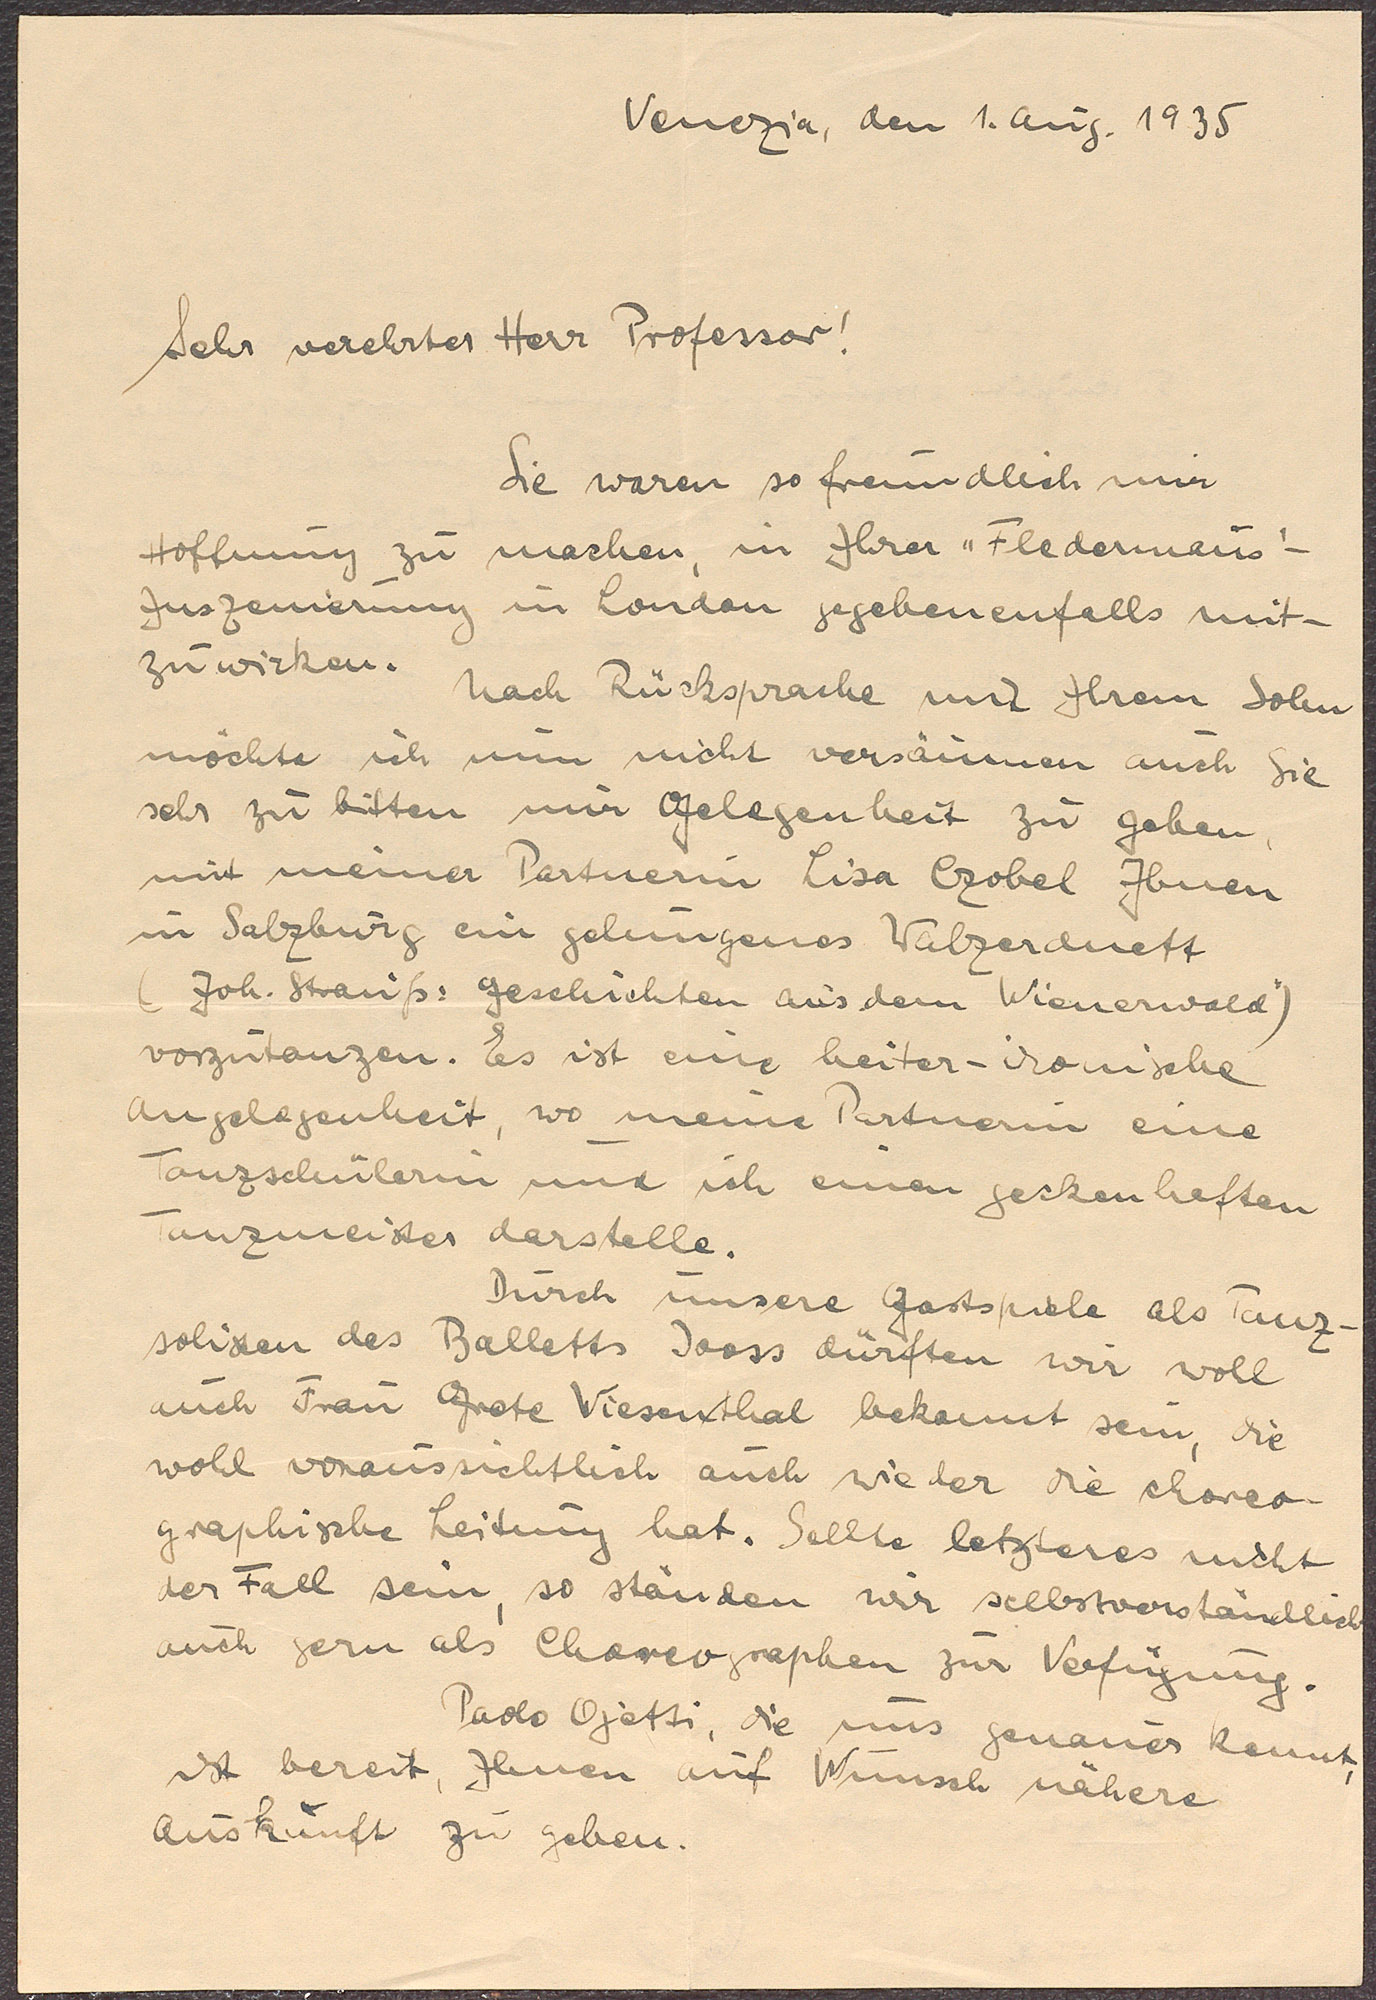 Venezia, den 1. Aug. 1935
Sehr verehrter Herr Professor!
Sie waren so freundlich mir
Hoffnung zu machen, in Ihrer „Fledermaus"-
Inszenierung in London gegebenenfalls mit-
zuwirken.
Nach Rücksprache mit Ihrem Sohn
möchte ich nun nicht versäumen auch Sie
sehr zu bitten mir Gelegenheit zu geben,
mit meiner Partnerin Lisa Czobel Ihnen
in Salzburg ein gelungenes Walzerduett
( Joh. Strauß: Geschichten aus dem Wienerwald")
vorzutanzen. Es ist eine heiter-ironische
Angelegenheit, wo meine Partnerin eine
Tanzschülerin und ich einen geckenhaften
Tanzmeister darstelle.
Durch unsere Gastspiele als Tanz-
solisten des Balletts Jooss dürften wir woll
auch Frau Grete Wiesenthal bekannt sein, die
wohl voraussichtlich auch wieder die choreo-
graphische Leitung hat. Sollte letzteres nicht
der Fall sein, so ständen wir selbstverständlich
auch gern als Choreographen zur Verfügung.
Paolo Ojetti, die uns genauer kennt,
ist bereit, Ihnen auf Wunsch nähere
Auskunft zu geben.